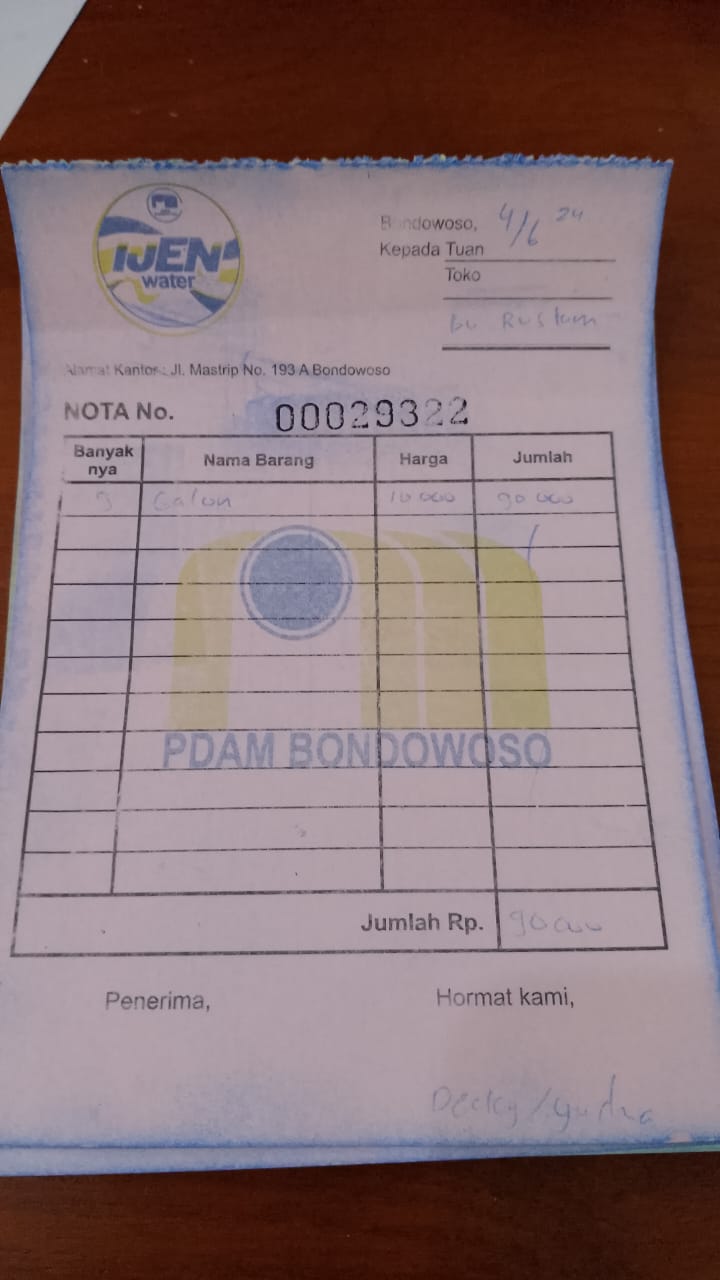 IJEN
water
Bondowoso, 4/6 24
Kepada Tuan
Toko
Bu Rustam
Alamat Kantor : Jl. Mastrip No. 193 A Bondowoso
NOTA No. 00029322
Banyak nya Nama Barang Harga Jumlah
9 Galon 10 000 90 000
PDAM BONDOWOSO
Jumlah Rp. 90 000
Penerima, Hormat kami,
Decky /